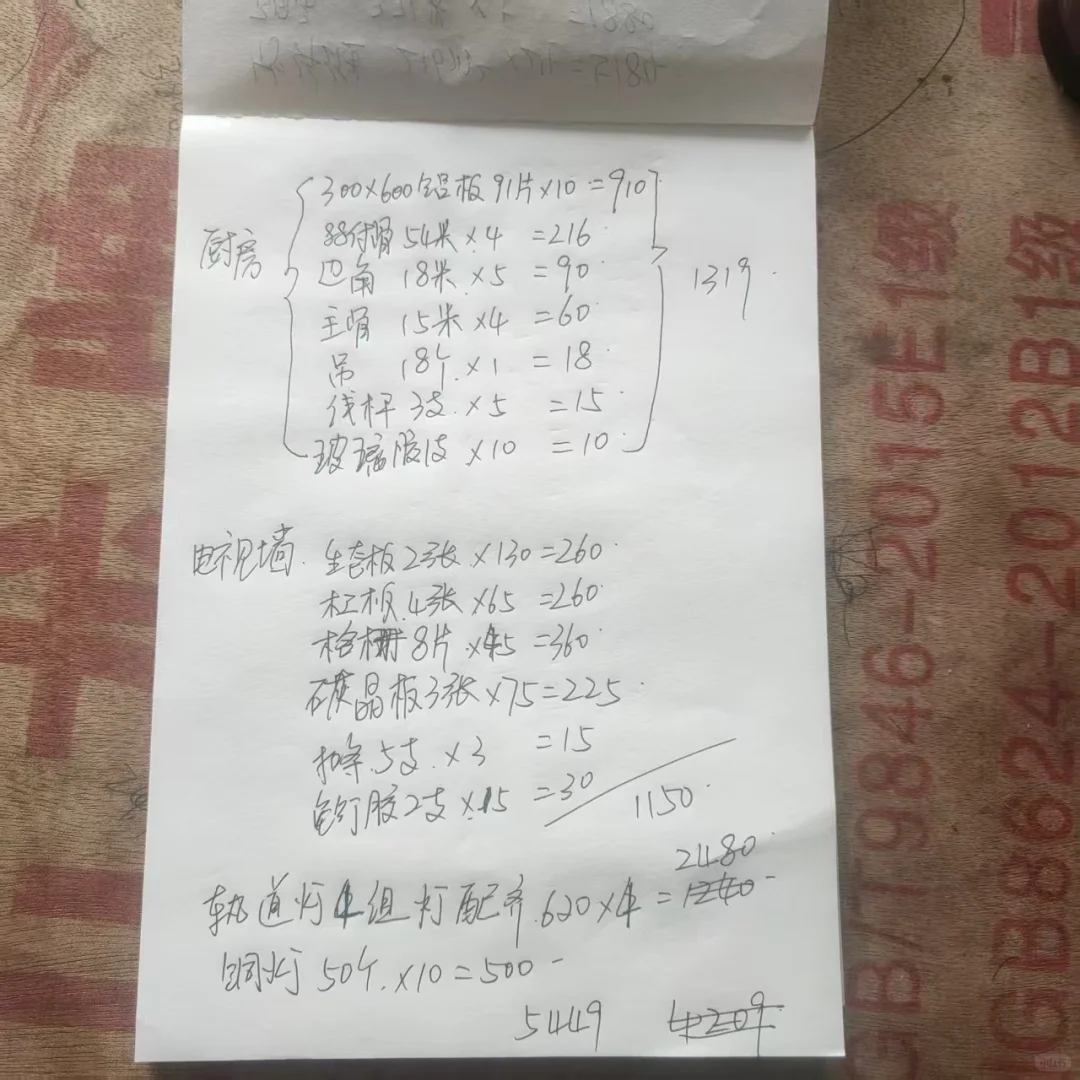 厨房
300×600铝板 91片×10=910
付骨 54米×4 =216
边角 18米×5 =90
主骨 15米×4 =60
吊 18个×1 =18
杆 3支×5 =15
玻璃胶1支×10 =10
1319
电视墙
板2张×130=260
杠板4张×65=260
格栅8片×45=360
碳晶板3张×75=225
5支×3 =15
免钉胶2支×15 =30
1150
2480
轨道灯4组灯配齐 620×4=1240
筒灯50个×10=500
5449 4209
GB/T9846-2015E1级
GB8624-2012B1级